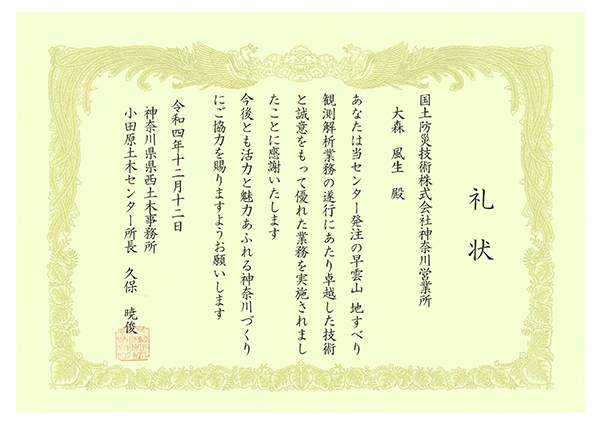 礼状
国土防災技術株式会社神奈川営業所
大森 風生 殿
あなたは当センター発注の早雲山 地すべり
観測解析業務の遂行にあたり卓越した技術
と誠意をもって優れた業務を実施されまし
たことに感謝いたします
今後とも活力と魅力あふれる神奈川づくり
にご協力を賜りますようお願いします
令和四年十二月十二日
神奈川県県西土木事務所
小田原土木センター所長 久保 暁俊